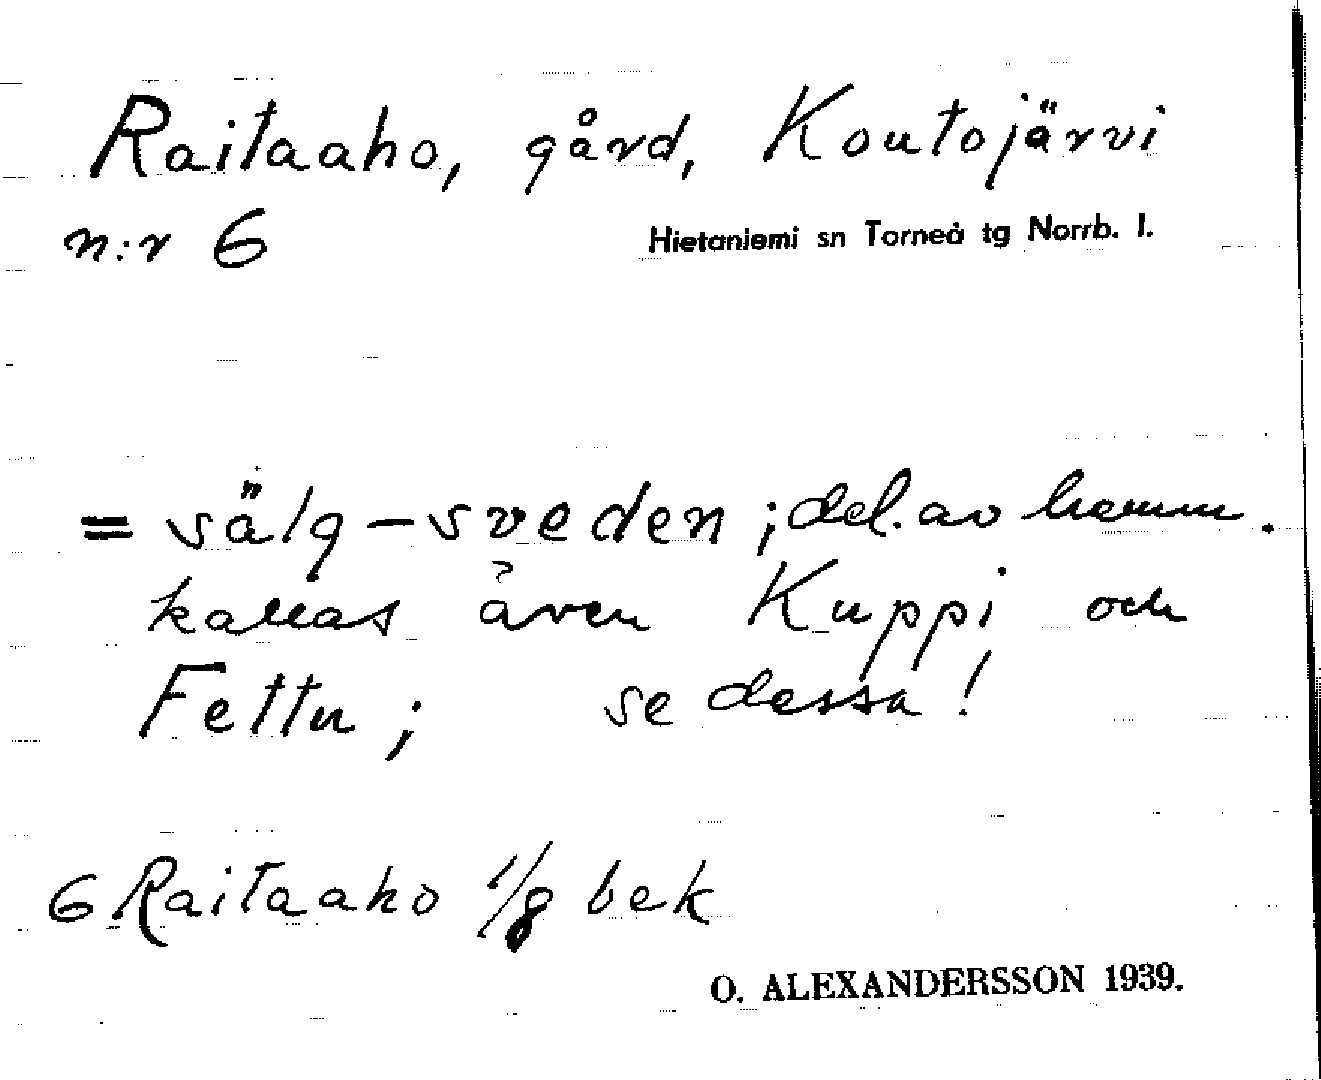 Raitaaho, gård, Koutojärvi
n:r 6
Hietaniemi sn Torneå tg Norrb. l.
= sälg-sveden ; del. av hemm.
kallas även Kuppi och
Fettu ; se dessa !
6 Raitaaho 1/8 bek
O. ALEXANDERSSON 1939.